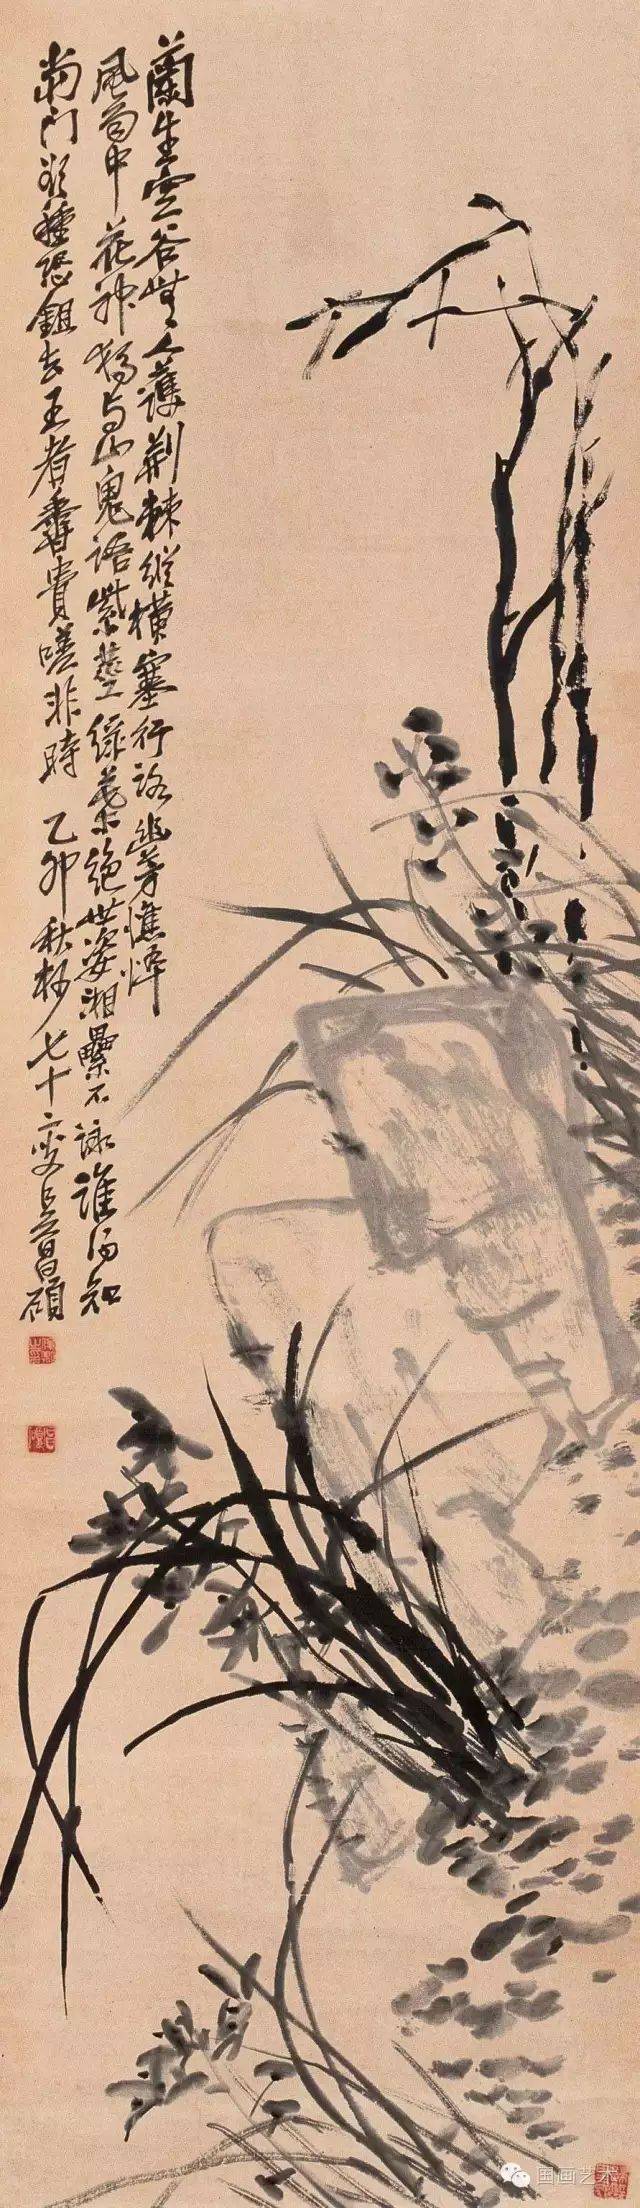 蘭生空谷無人護荆棘縱橫塞行路幽芳憔悴
風雨中花神獨与山鬼語紫莖綠葉絕世姿湘纍不詠誰得知
當門欲種恐鉏去王者香貴嗟非時 乙卯秋杪七十二叟吳昌碩
国画艺术